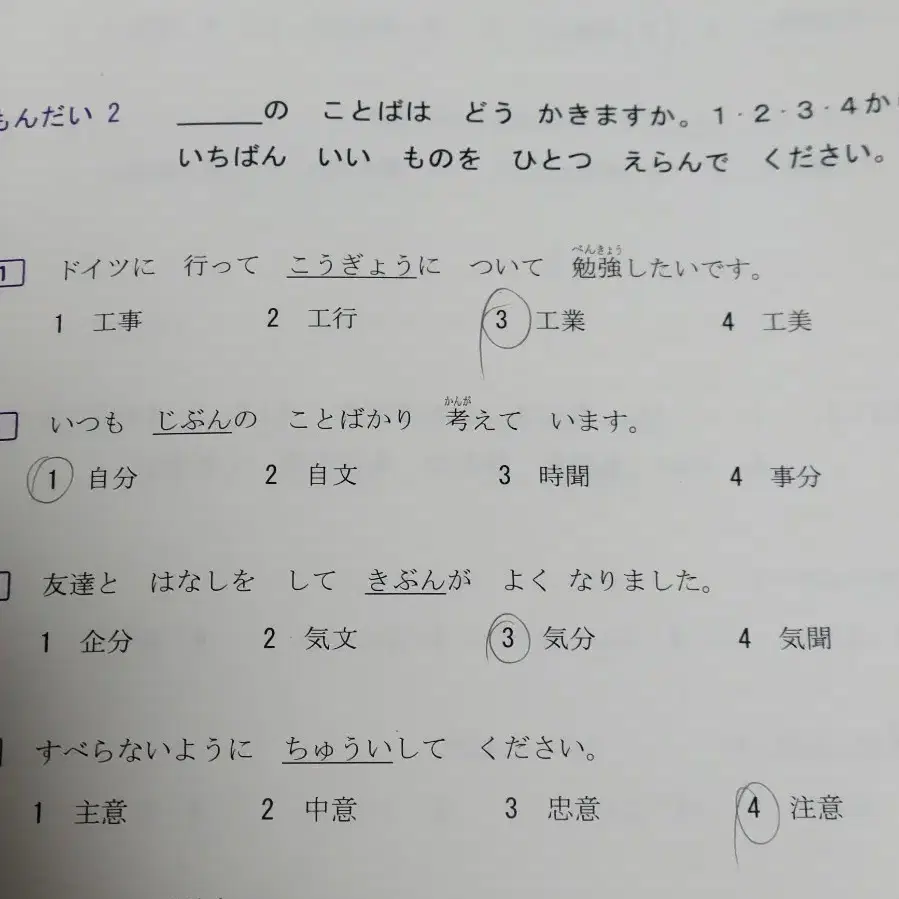 もんだい 2 ＿＿＿の ことばは どう かきますか。1・2・3・4か
いちばん いい ものを ひとつ えらんで ください。
1 ドイツに 行って こうぎょうに ついて 勉強(べんきょう)したいです。
1 工事 2 工行 3 工業 4 工美
いつも じぶんの ことばかり 考(かんが)えて います。
1 自分 2 自文 3 時聞 4 事分
友達と はなしを して きぶんが よく なりました。
1 企分 2 気文 3 気分 4 気聞
すべらないように ちゅういして ください。
1 主意 2 中意 3 忠意 4 注意